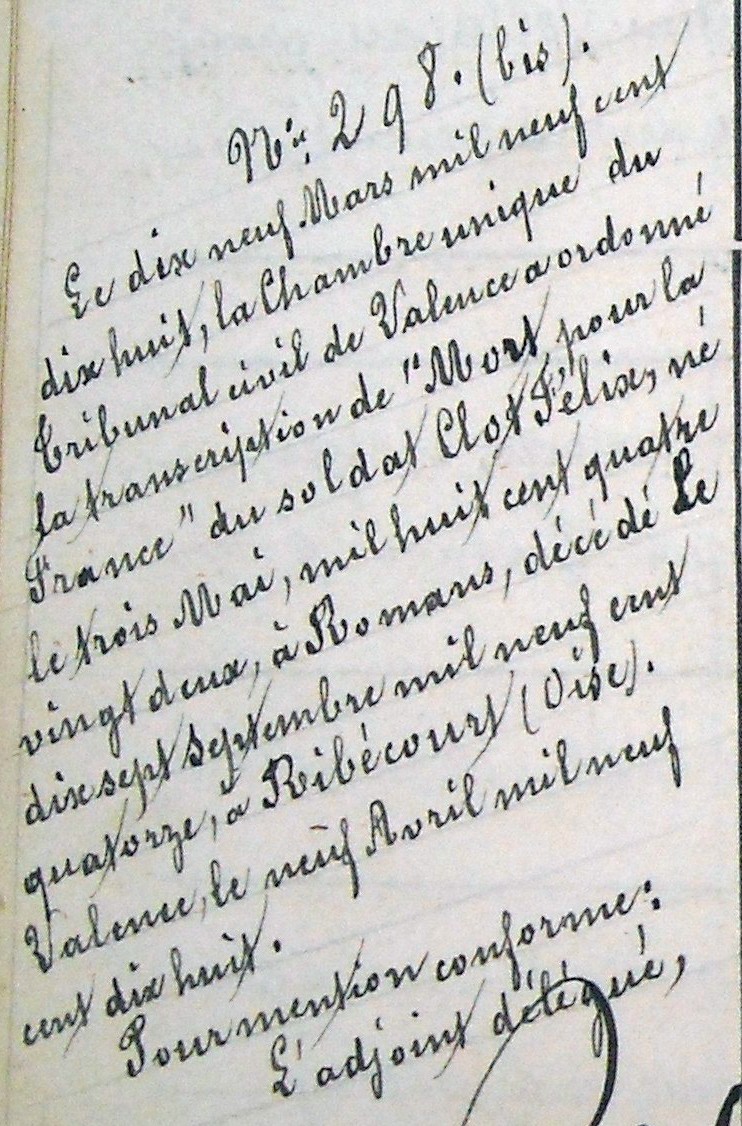 N°: 298. (bis).
Le dix neuf Mars mil neuf cent
dix huit, la Chambre unique du
Tribunal civil de Valence a ordonné
la transcription de "Mort pour la
France" du soldat Clot Félix, né
le trois Mai, mil huit cent quatre
vingt deux, à Romans, décédé le
dix sept Septembre mil neuf cent
quatorze, à Ribécourt (Oise).
Valence, le neuf Avril mil neuf
cent dix huit.
Pour mention conforme:
L'adjoint délégué,